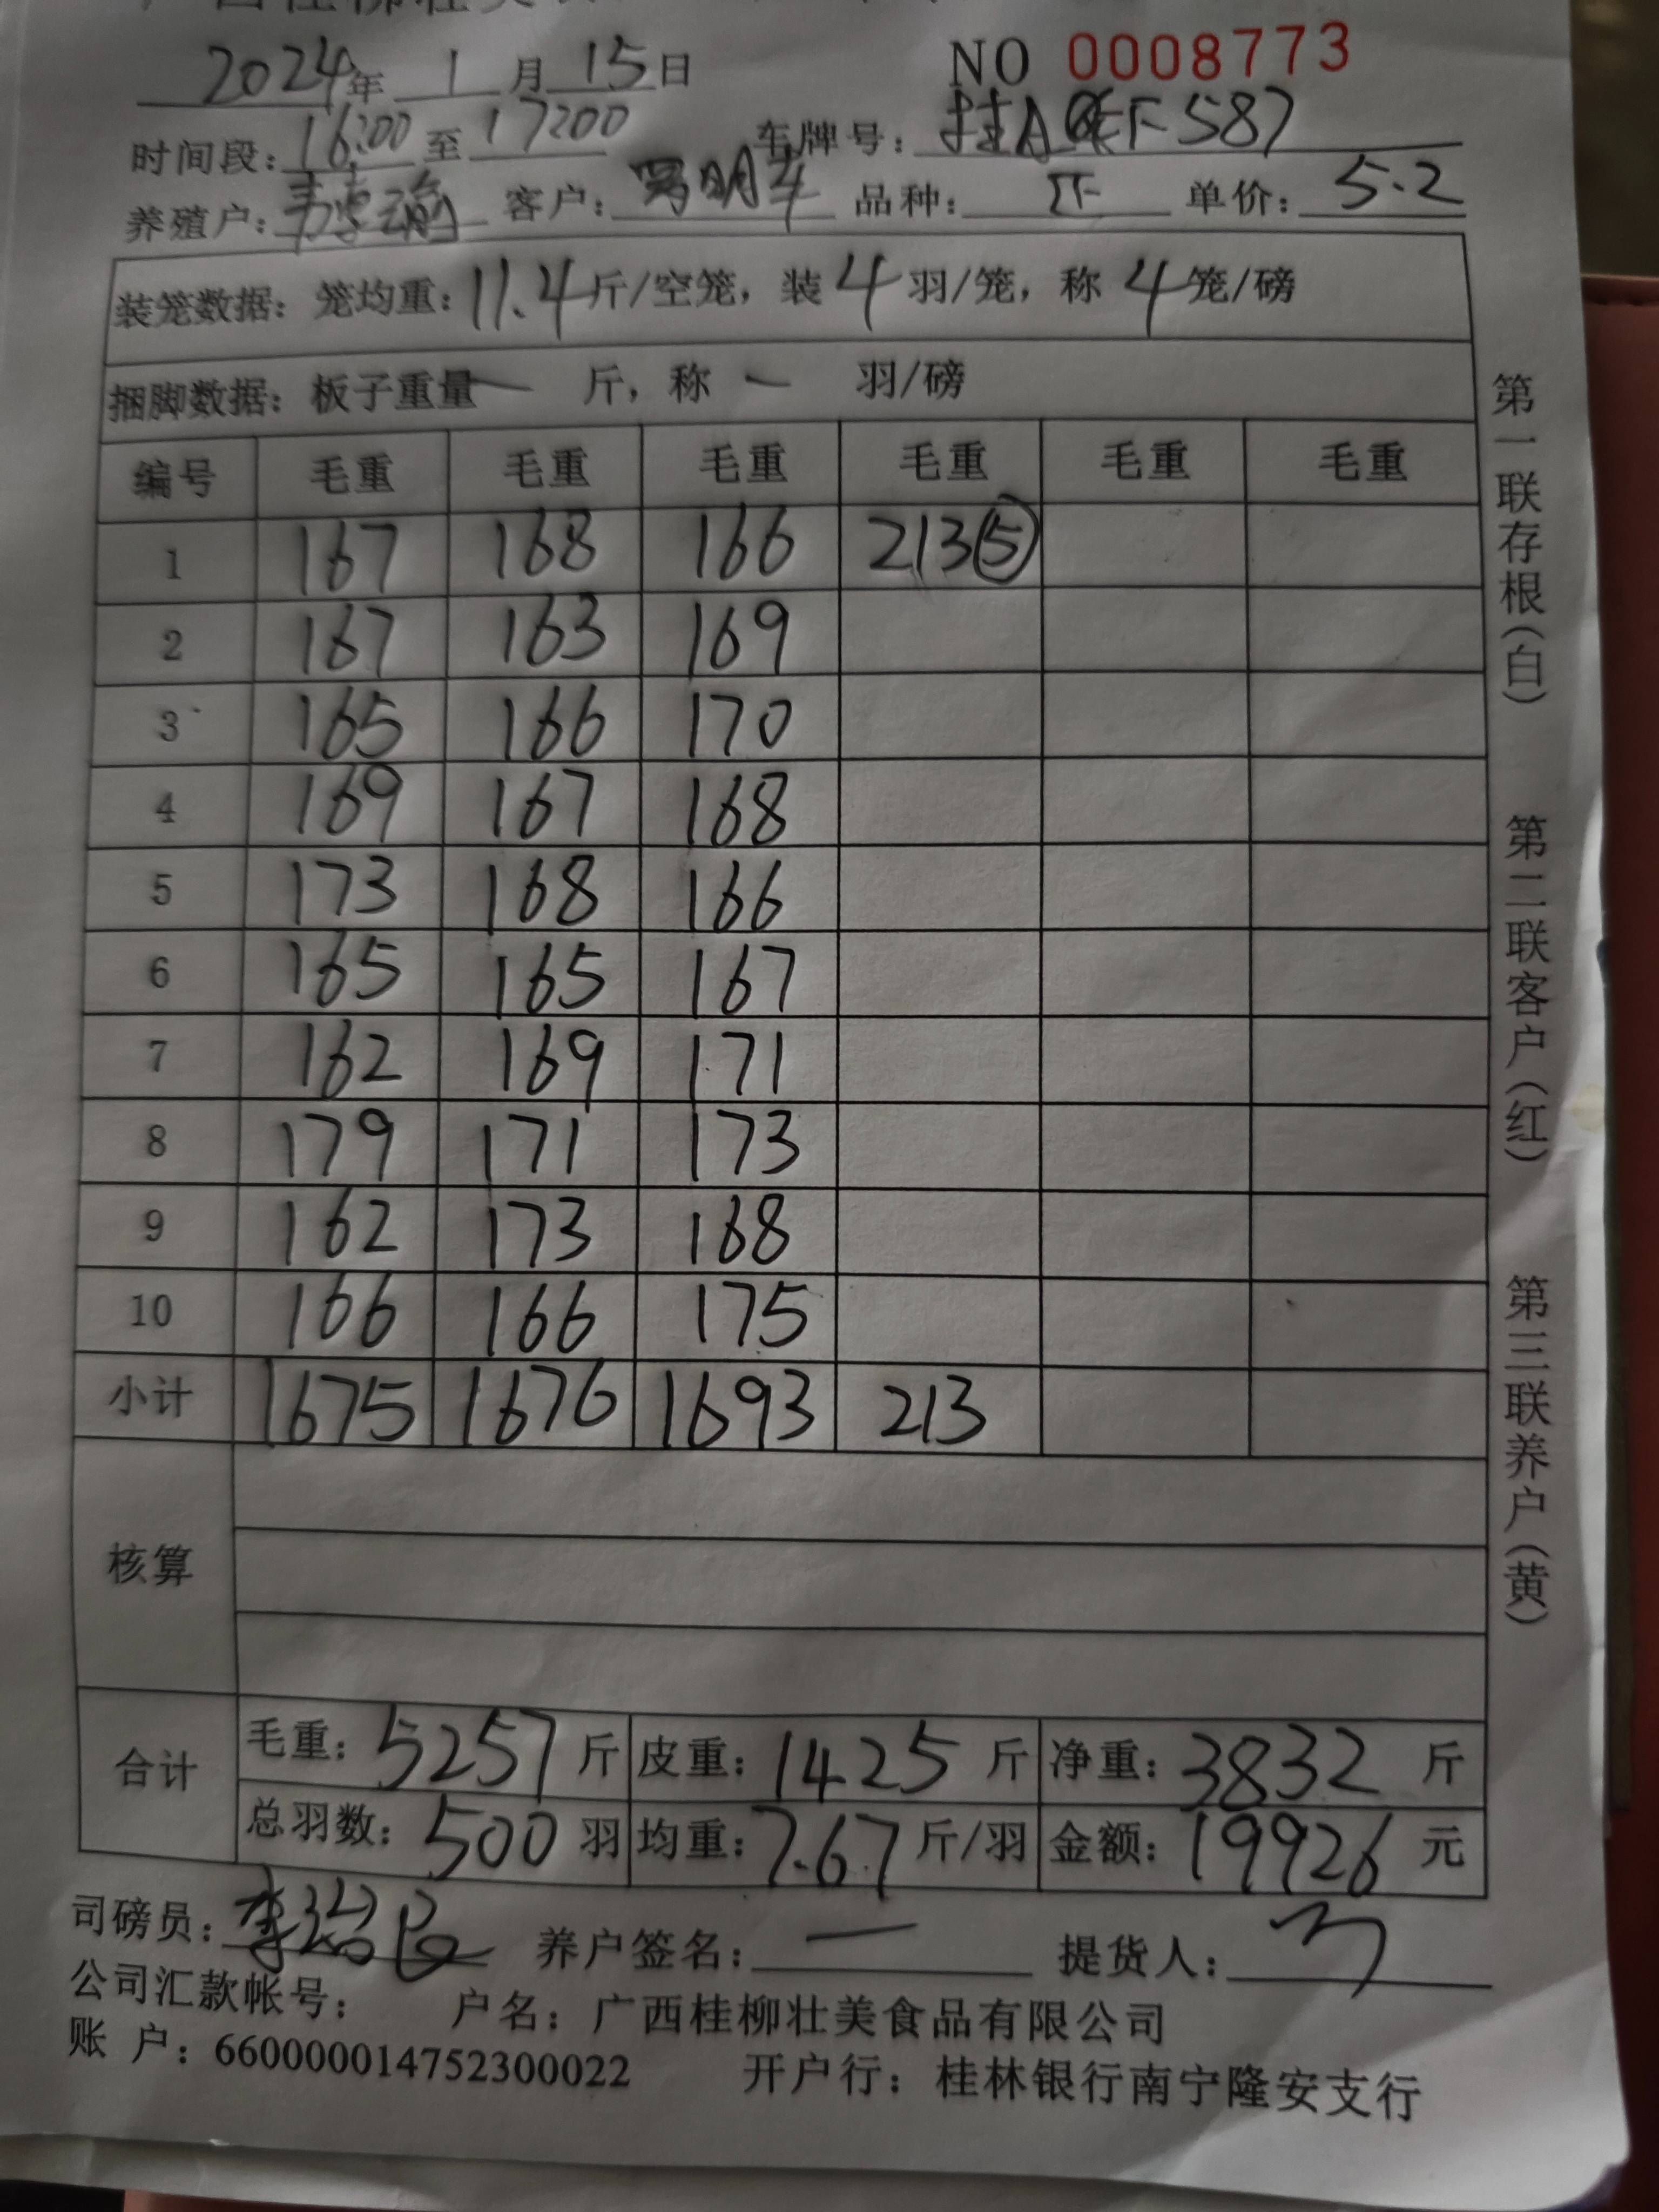 2024年 1 月 15 日
NO 0008773
时间段: 16:00 至 17:00 车牌号: 桂A F587
养殖户: 客户: 明 品种: 单价: 5.2
装笼数据: 笼均重: 11.4 斤/空笼, 装 4 羽/笼, 称 4 笼/磅
捆脚数据: 板子重量 一 斤, 称 一 羽/磅
编号 毛重 毛重 毛重 毛重 毛重 毛重
1 167 168 166 213⑤
2 167 163 169
3 165 166 170
4 169 167 168
5 173 168 166
6 165 165 167
7 162 169 171
8 179 171 173
9 162 173 168
10 166 166 175
小计 1675 1676 1693 213
核算
合计 毛重: 5257 斤 皮重: 1425 斤 净重: 3832 斤
总羽数: 500 羽 均重: 7.67 斤/羽 金额: 19926 元
司磅员: 李 养户签名: 一 提货人:
公司汇款帐号: 户名: 广西桂柳壮美食品有限公司
账 户: 660000014752300022 开户行: 桂林银行南宁隆安支行
第一联存根(白) 第二联客户(红) 第三联养户(黄)